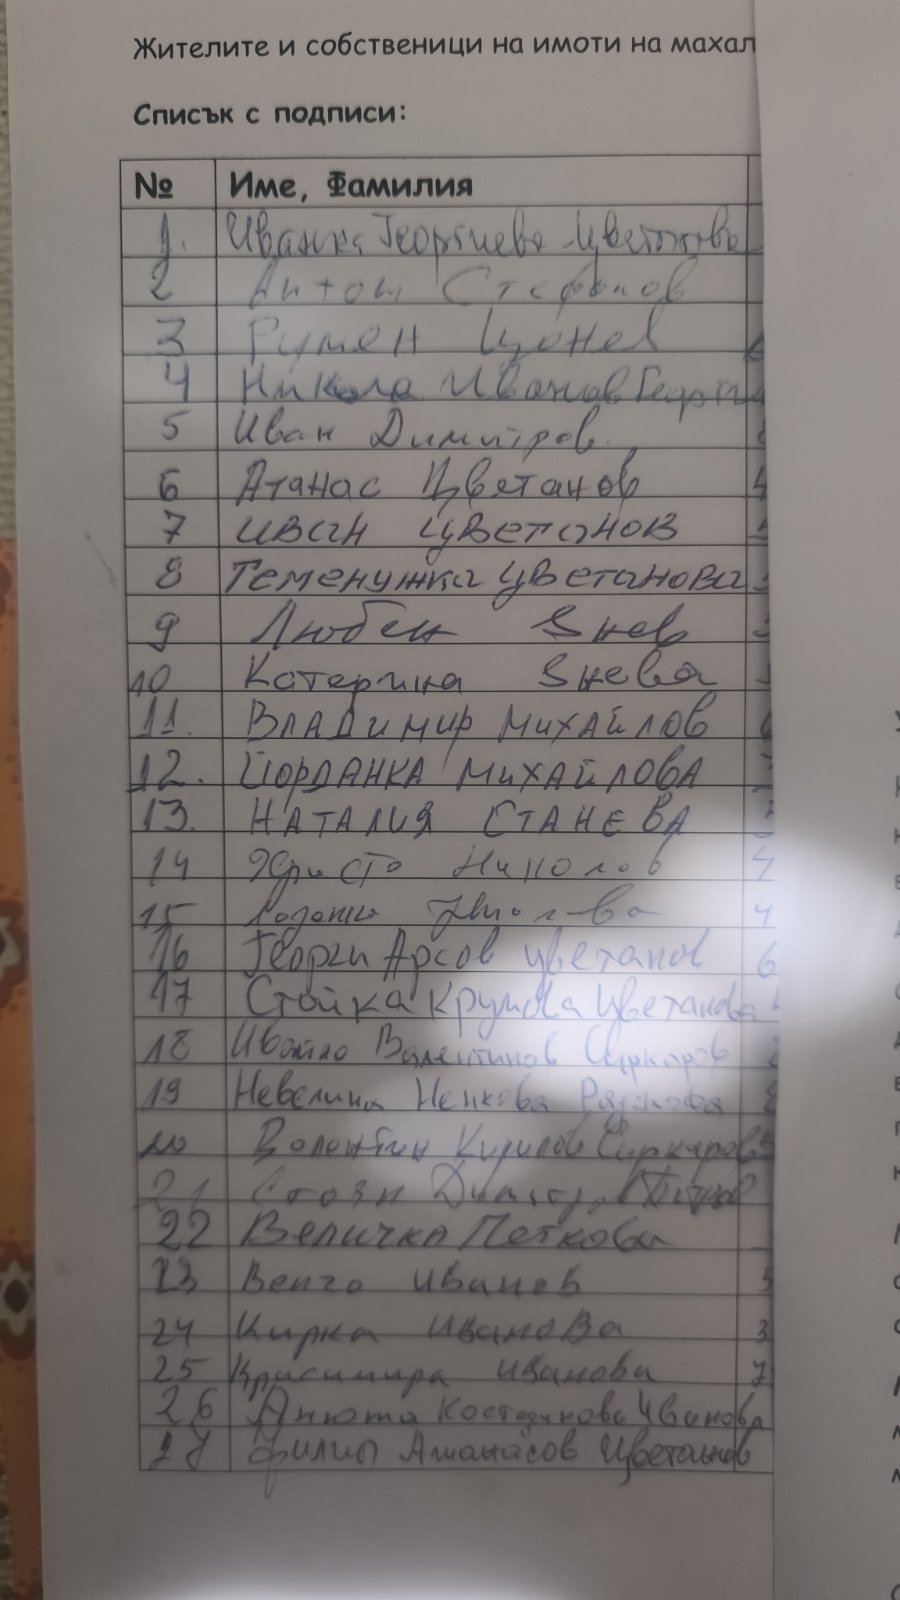 Жителите и собственици на имоти на махал
Списък с подписи:
№ Име, Фамилия
1. Иванка Георгиева Цветанова
2 Антон Стефанов
3 Румен Цонев
4 Никола Иванов Георги
5 Иван Димитров
6 Атанас Цветанов
7 Иван Цветанов
8 Теменужка Цветанова
9 Любен Энев
10 Катерина Энева
11. Владимир Михайлов
12. Йорданка Михайлова
13. Наталия Станева
14 Христо Николов
15
16 Георги Арсов Цветанов
17 Стойка Крумова Цветанова
18 Ивайло Валентинов Сиркаров
19 Невелина Ненкова
20 Валентин Кирилов Сиркаров
21 Стоян Димитров Петров
22 Величка Петкова
23 Венчо Иванов
24 Кирка Иванова
25 Красимира Иванова
26 Анюта Костадинова Иванова
27 Филип Атанасов Цветанов